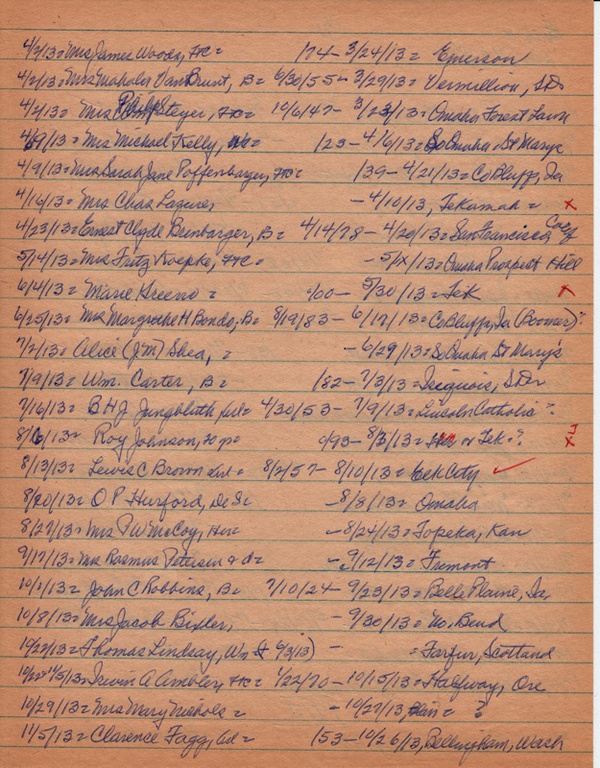 4/2/13= Mrs James Woods, Hc= 174- 3/24/13= Emerson
4/2/13= Mrs Mahala VanBrunt, B= 6/30/55- 3/29/13= Vermillion, SD=
4/2/13= Mrs Philip Steyer, Hc= 10/6/47- 3/23/13= Omaha Forest Lawn
4/9/13= Mrs Michael Kelly, 123- 4/6/13= So Omaha St Marys
4/9/13= Mrs Sarah Jane Poffenbarger, Hc= 139- 4/21/13= Co Bluffs, Ia
4/16/13= Mrs Chas - 4/10/13, Tekamah= x
4/23/13= Ernest Clyde Brinbarger, B= 4/14/78- 4/20/13= San Francisco, Calif
5/14/13= Mrs Fritz Koepke, Hc= - 5/x/13= Omaha Prospect Hill
6/4/13= Marie Greeno= 1/00- 5/30/13= Tek x
6/25/13= Mrs Margrethe H Bondo, B= 8/19/83- 6/17/13= Co Bluffs, Ia (Boomer)?
7/2/13= Alice (J'M) Shea, = - 6/29/13= So Omaha St Mary's
7/9/13= Wm. Carter, B= 182- 7/3/13= Iroquois, SD=
7/16/13= B H J Jungbluth, 4/30/53- 7/9/13= Lincoln Catholic?
8/6/13= Roy Johnson, 1/93- 8/3/13= or Tek=?
8/13/13= Lewis C Brown 8/2/57- 8/10/13= Cek City ✓
8/20/13= O P Hurford, - 8/8/13= Omaha
8/27/13= Mrs P W McCoy, - 8/24/13= Topeka, Kan
9/17/13= Mrs Rasmus Petersen - 9/12/13= Fremont
10/1/13= John C Robbins, B= 7/10/24- 9/23/13= Belle Plaine, Ia,
10/8/13= Mrs Jacob Bixler, - 9/30/13= No, Bend
10/22/13= Thomas Lindsay, 9/3/13) - = Scotland
10/22= 11/5/13= Irwin A Ambler, Hc= 1/22/70- 10/15/13= Halfway, Ore
10/29/13= Mrs Mary Nichols= - 10/27/13, Blair= ?
11/5/13= Clarence Fagg, 153- 10/26/13, Bellingham, Wash